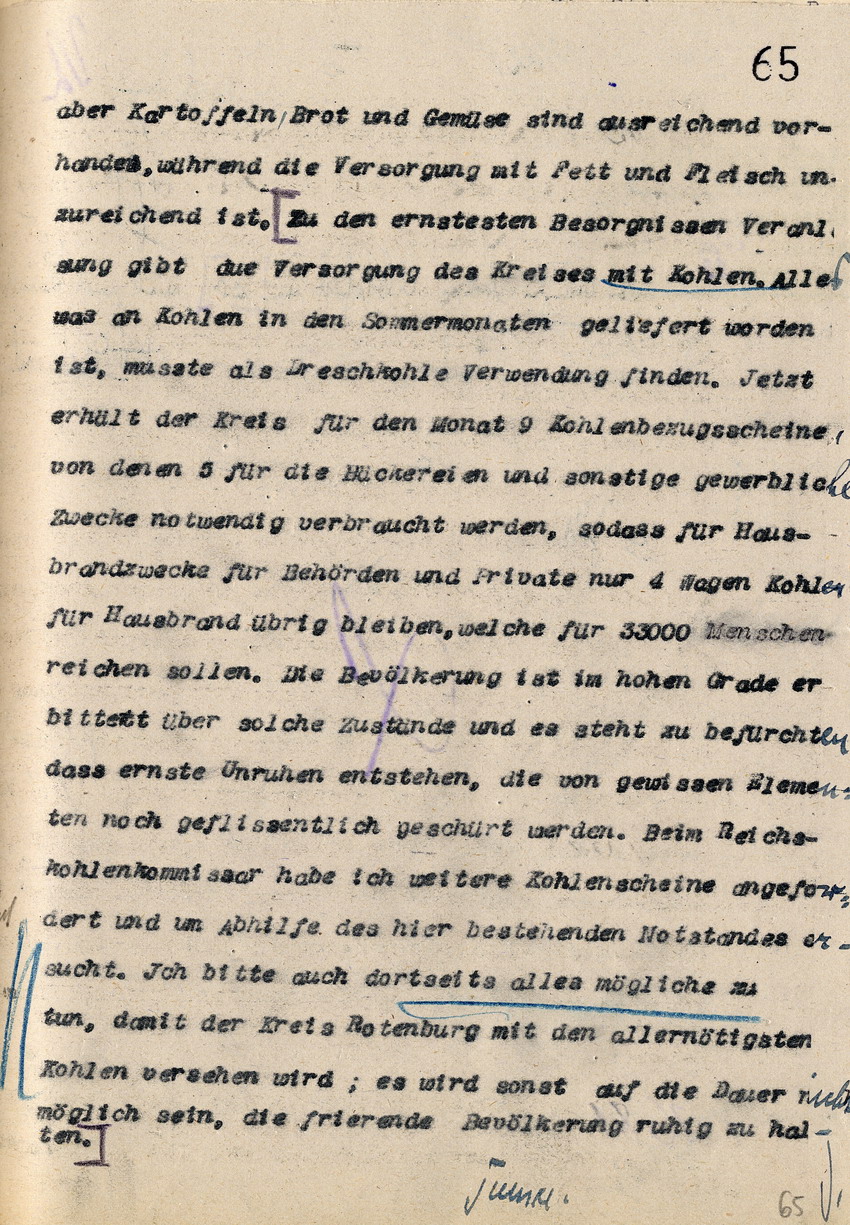 65
aber Kartoffeln, Brot und Gemüse sind ausreichend vor-
handen, während die Versorgung mit Fett und Fleisch un-
zureichend ist. [Zu den ernstesten Besorgnissen Veranl.
sung gibt due Versorgung des Kreises mit Kohlen. Alles
was an Kohlen in den Sommermonaten geliefert worden
ist, musste als Dreschkohle Verwendung finden. Jetzt
erhält der Kreis für den Monat 9 Kohlenbezugsscheine,
von denen 5 für die Bäckereien und sonstige gewerbliche
Zwecke notwendig verbraucht werden, sodass für Haus-
brandzwecke für Behörden und Private nur 4 Wagen Kohlen
für Hausbrand übrig bleiben, welche für 33000 Menschen
reichen sollen. Die Bevölkerung ist im hohen Grade er
bittett über solche Zustände und es steht zu befürchten
dass ernste Unruhen entstehen, die von gewissen Elemen-
ten noch geflissentlich geschürt werden. Beim Reichs-
kohlenkommissar habe ich weitere Kohlenscheine angefor-
dert und um Abhilfe des hier bestehenden Notstandes er-
sucht. Jch bitte auch dortseits alles mögliche zu
tun, damit der Kreis Rotenburg mit den allernötigsten
Kohlen versehen wird ; es wird sonst auf die Dauer nicht
möglich sein, die frierende Bevölkerung ruhig zu hal-
ten.]
65